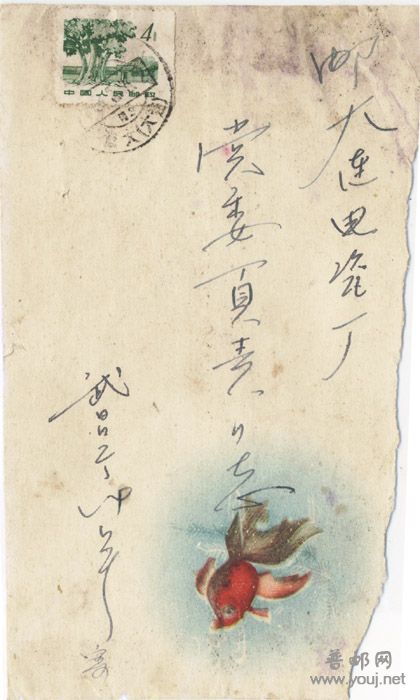 4
中国人民邮政
邮
大连电瓷厂
党委负责同志
武昌
寄
普邮网
www.youj.net